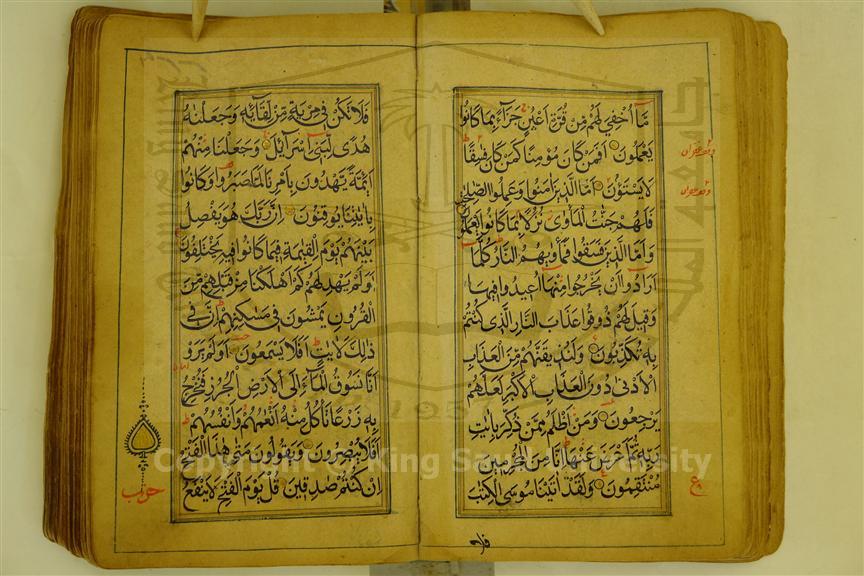 مَّا اُخْفِيَ لَهُمْ مِنْ قُرَّةِ اَعْيُنٍ جَزَآءً بِمَا كَانُوا
يَعْمَلُونَ اَفَمَنْ كَانَ مُؤْمِنًا كَمَنْ كَانَ فَاسِقًا
لَا يَسْتَوٗنَ اَمَّا الَّذِينَ اٰمَنُوا وَعَمِلُوا الصّٰلِحٰتِ
فَلَهُمْ جَنّٰتُ الْمَاْوٰى نُزُلًا بِمَا كَانُوا يَعْمَلُونَ
وَاَمَّا الَّذِينَ فَسَقُوا فَمَاْوٰيهُمُ النَّارُ كُلَّمَا
اَرَادُوا اَنْ يَخْرُجُوا مِنْهَا اُعِيدُوا فِيهَا
وَقِيلَ لَهُمْ ذُوقُوا عَذَابَ النَّارِ الَّذِي كُنْتُمْ
بِهِ تُكَذِّبُونَ وَلَنُذِيقَنَّهُمْ مِنَ الْعَذَابِ
الْاَدْنٰى دُونَ الْعَذَابِ الْاَكْبَرِ لَعَلَّهُمْ
يَرْجِعُونَ وَمَنْ اَظْلَمُ مِمَّنْ ذُكِّرَ بِاٰيٰتِ
رَبِّهِ ثُمَّ اَعْرَضَ عَنْهَا اِنَّا مِنَ الْمُجْرِمِينَ
مُنْتَقِمُونَ وَلَقَدْ اٰتَيْنَا مُوسَى الْكِتٰبَ
ع
فلا
فَلَا تَكُنْ فِي مِرْيَةٍ مِنْ لِقَآئِهِ وَجَعَلْنٰهُ
هُدًى لِبَنِي اِسْرَآئِيلَ وَجَعَلْنَا مِنْهُمْ
اَئِمَّةً يَهْدُونَ بِاَمْرِنَا لَمَّا صَبَرُوا وَكَانُوا
بِاٰيٰتِنَا يُوقِنُونَ اِنَّ رَبَّكَ هُوَ يَفْصِلُ
بَيْنَهُمْ يَوْمَ الْقِيٰمَةِ فِيمَا كَانُوا فِيهِ يَخْتَلِفُونَ
اَوَلَمْ يَهْدِ لَهُمْ كَمْ اَهْلَكْنَا مِنْ قَبْلِهِمْ مِنَ
الْقُرُونِ يَمْشُونَ فِي مَسٰكِنِهِمْ اِنَّ فِي
ذٰلِكَ لَاٰيٰتٍ اَفَلَا يَسْمَعُونَ اَوَلَمْ يَرَوْا
اَنَّا نَسُوقُ الْمَآءَ اِلَى الْاَرْضِ الْجُرُزِ فَنُخْرِجُ
بِهِ زَرْعًا تَاْكُلُ مِنْهُ اَنْعَامُهُمْ وَاَنْفُسُهُمْ
اَفَلَا يُبْصِرُونَ وَيَقُولُونَ مَتٰى هٰذَا الْفَتْحُ
اِنْ كُنْتُمْ صٰدِقِينَ قُلْ يَوْمَ الْفَتْحِ لَا يَنْفَعُ
حزب
Copyright © King Saud University